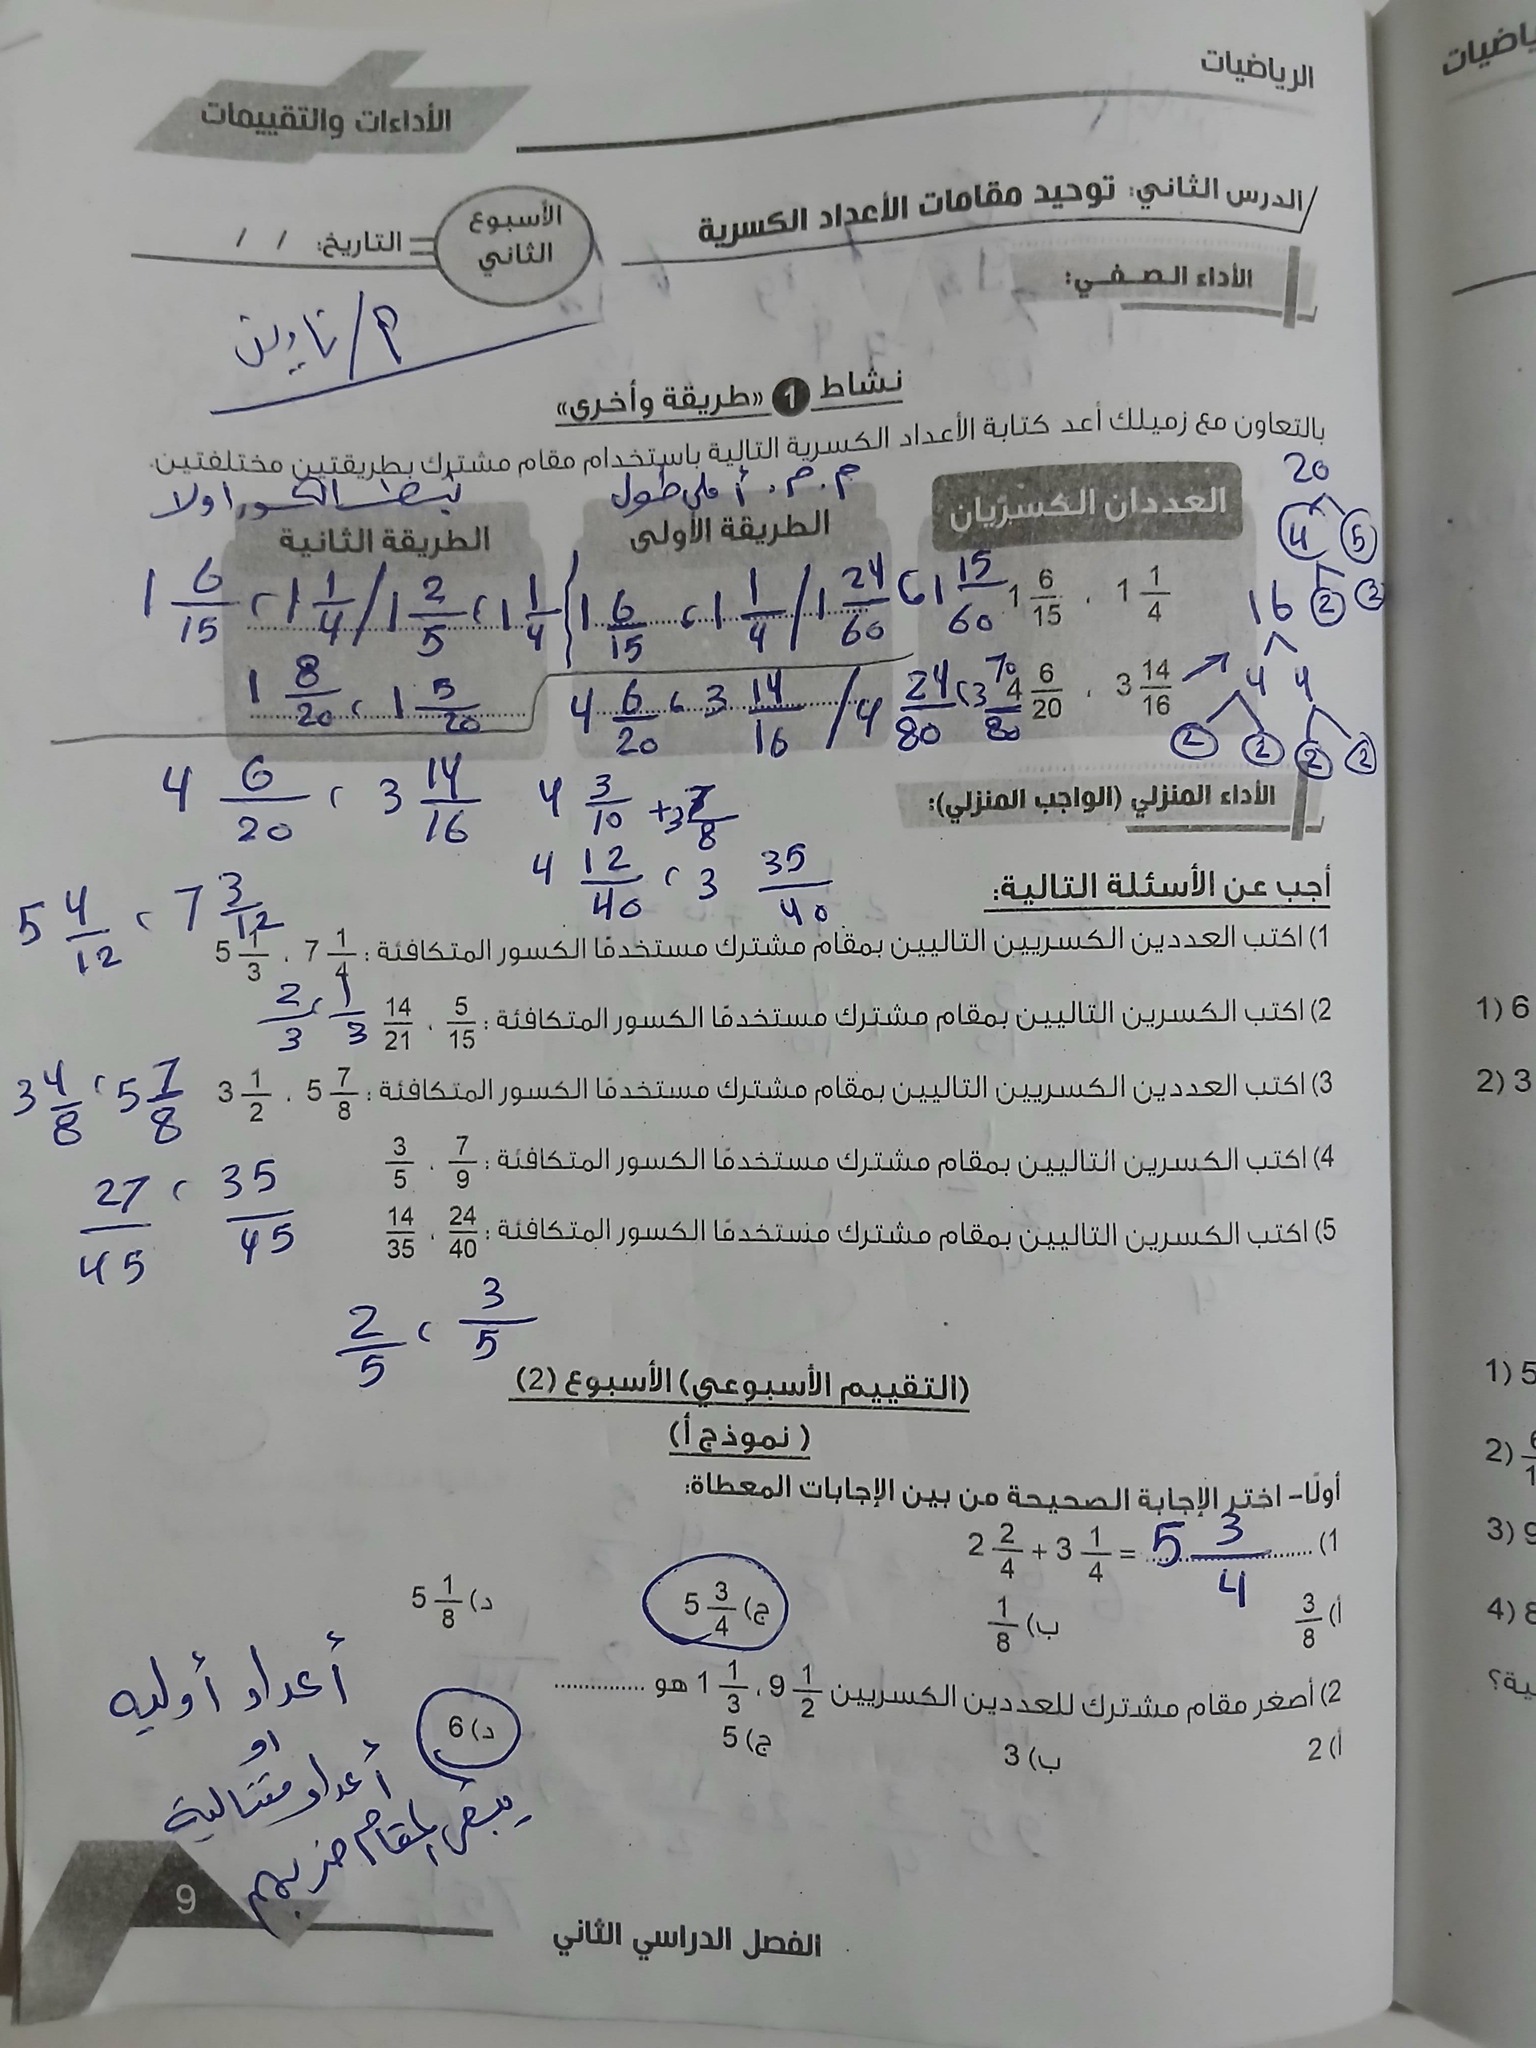 الرياضيات
الأداءات والتقييمات
الدرس الثاني: توحيد مقامات الأعداد الكسرية
الأسبوع الثاني
التاريخ: / /
الأداء الصفي:
نشاط 1 «طريقة وأخرى»
بالتعاون مع زميلك أعد كتابة الأعداد الكسرية التالية باستخدام مقام مشترك بطريقتين مختلفتين.
م.م.أ على طول
العددان الكسريان
الطريقة الأولى
الطريقة الثانية
1 1/4 ، 1 6/15
1 6/15 ، 1 1/4 / 1 24/60 ، 1 15/60
1 6/15 ، 1 1/4 / 1 2/5 ، 1 1/4
1 8/20 ، 1 5/20
3 14/16 ، 4 6/20
4 6/20 ، 3 14/16 / 4 24/80 ، 3 70/80
4 6/20 ، 3 14/16
4 3/10 + 3 7/8
4 12/40 ، 3 35/40
20
4 5
2 2
16
4 4
2 2 2 2
الأداء المنزلي (الواجب المنزلي):
أجب عن الأسئلة التالية:
1) اكتب العددين الكسريين التاليين بمقام مشترك مستخدمًا الكسور المتكافئة: 7 1/4 ، 5 1/3
5 4/12 ، 7 3/12
2) اكتب الكسرين التاليين بمقام مشترك مستخدمًا الكسور المتكافئة: 5/15 ، 14/21
2/3 ، 1/3
3) اكتب العددين الكسريين التاليين بمقام مشترك مستخدمًا الكسور المتكافئة: 5 7/8 ، 3 1/2
3 4/8 ، 5 7/8
4) اكتب الكسرين التاليين بمقام مشترك مستخدمًا الكسور المتكافئة: 7/9 ، 3/5
27/45 ، 35/45
5) اكتب الكسرين التاليين بمقام مشترك مستخدمًا الكسور المتكافئة: 24/40 ، 14/35
2/5 ، 3/5
(التقييم الأسبوعي) الأسبوع (2)
(نموذج أ)
أولًا- اختر الإجابة الصحيحة من بين الإجابات المعطاة:
1) 2 2/4 + 3 1/4 = 5 3/4
أ) 3/8 ب) 1/8 ج) 5 3/4 د) 5 1/8
2) أصغر مقام مشترك للعددين الكسريين 9 1/2 ، 1 1/3 هو ...............
أ) 2 ب) 3 ج) 5 د) 6
أعداد أوليه
او
أعداد متتالية
يبقى المقام ضربهم
9
الفصل الدراسي الثاني
رياضيات
1) 6
2) 3
1) 5
2)
3) 9
4) 8